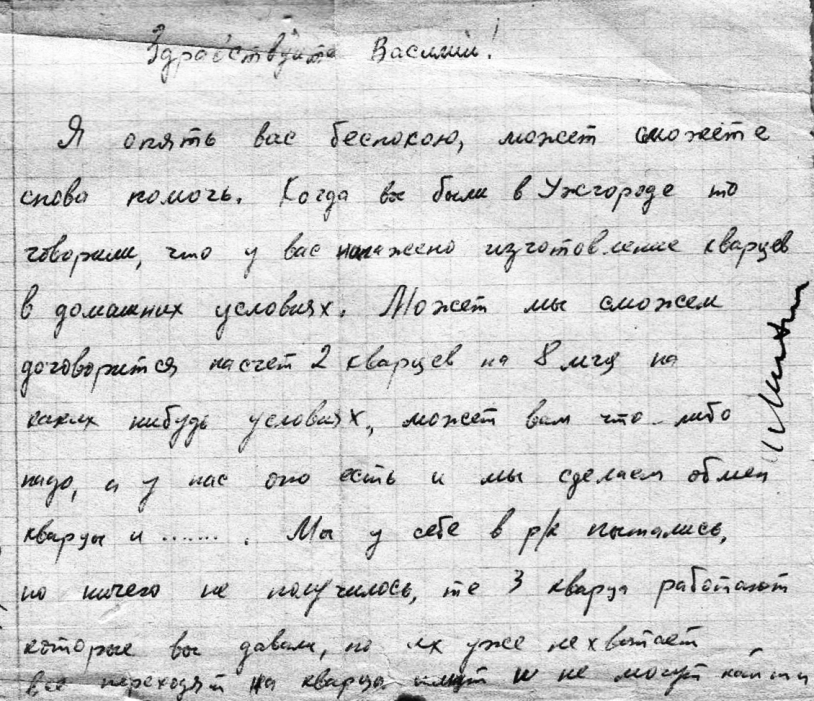 Здравствуйте Василий!
Я опять вас беспокою, может сможете
снова помочь. Когда вы были в Ужгороде то
говорили, что у вас налажено изготовление кварцев
в домашних условиях. Может мы сможем
договорится насчет 2 кварцев на 8 мгц на
каких нибудь условиях, может вам что-либо
надо, а у нас оно есть и мы сделаем обмен
кварцы и ....... . Мы у себе в р/к пытались,
но ничего не получилось, те 3 кварца работают
которые вы давали, но их уже не хватает
все переходят на кварцы и не могут найти